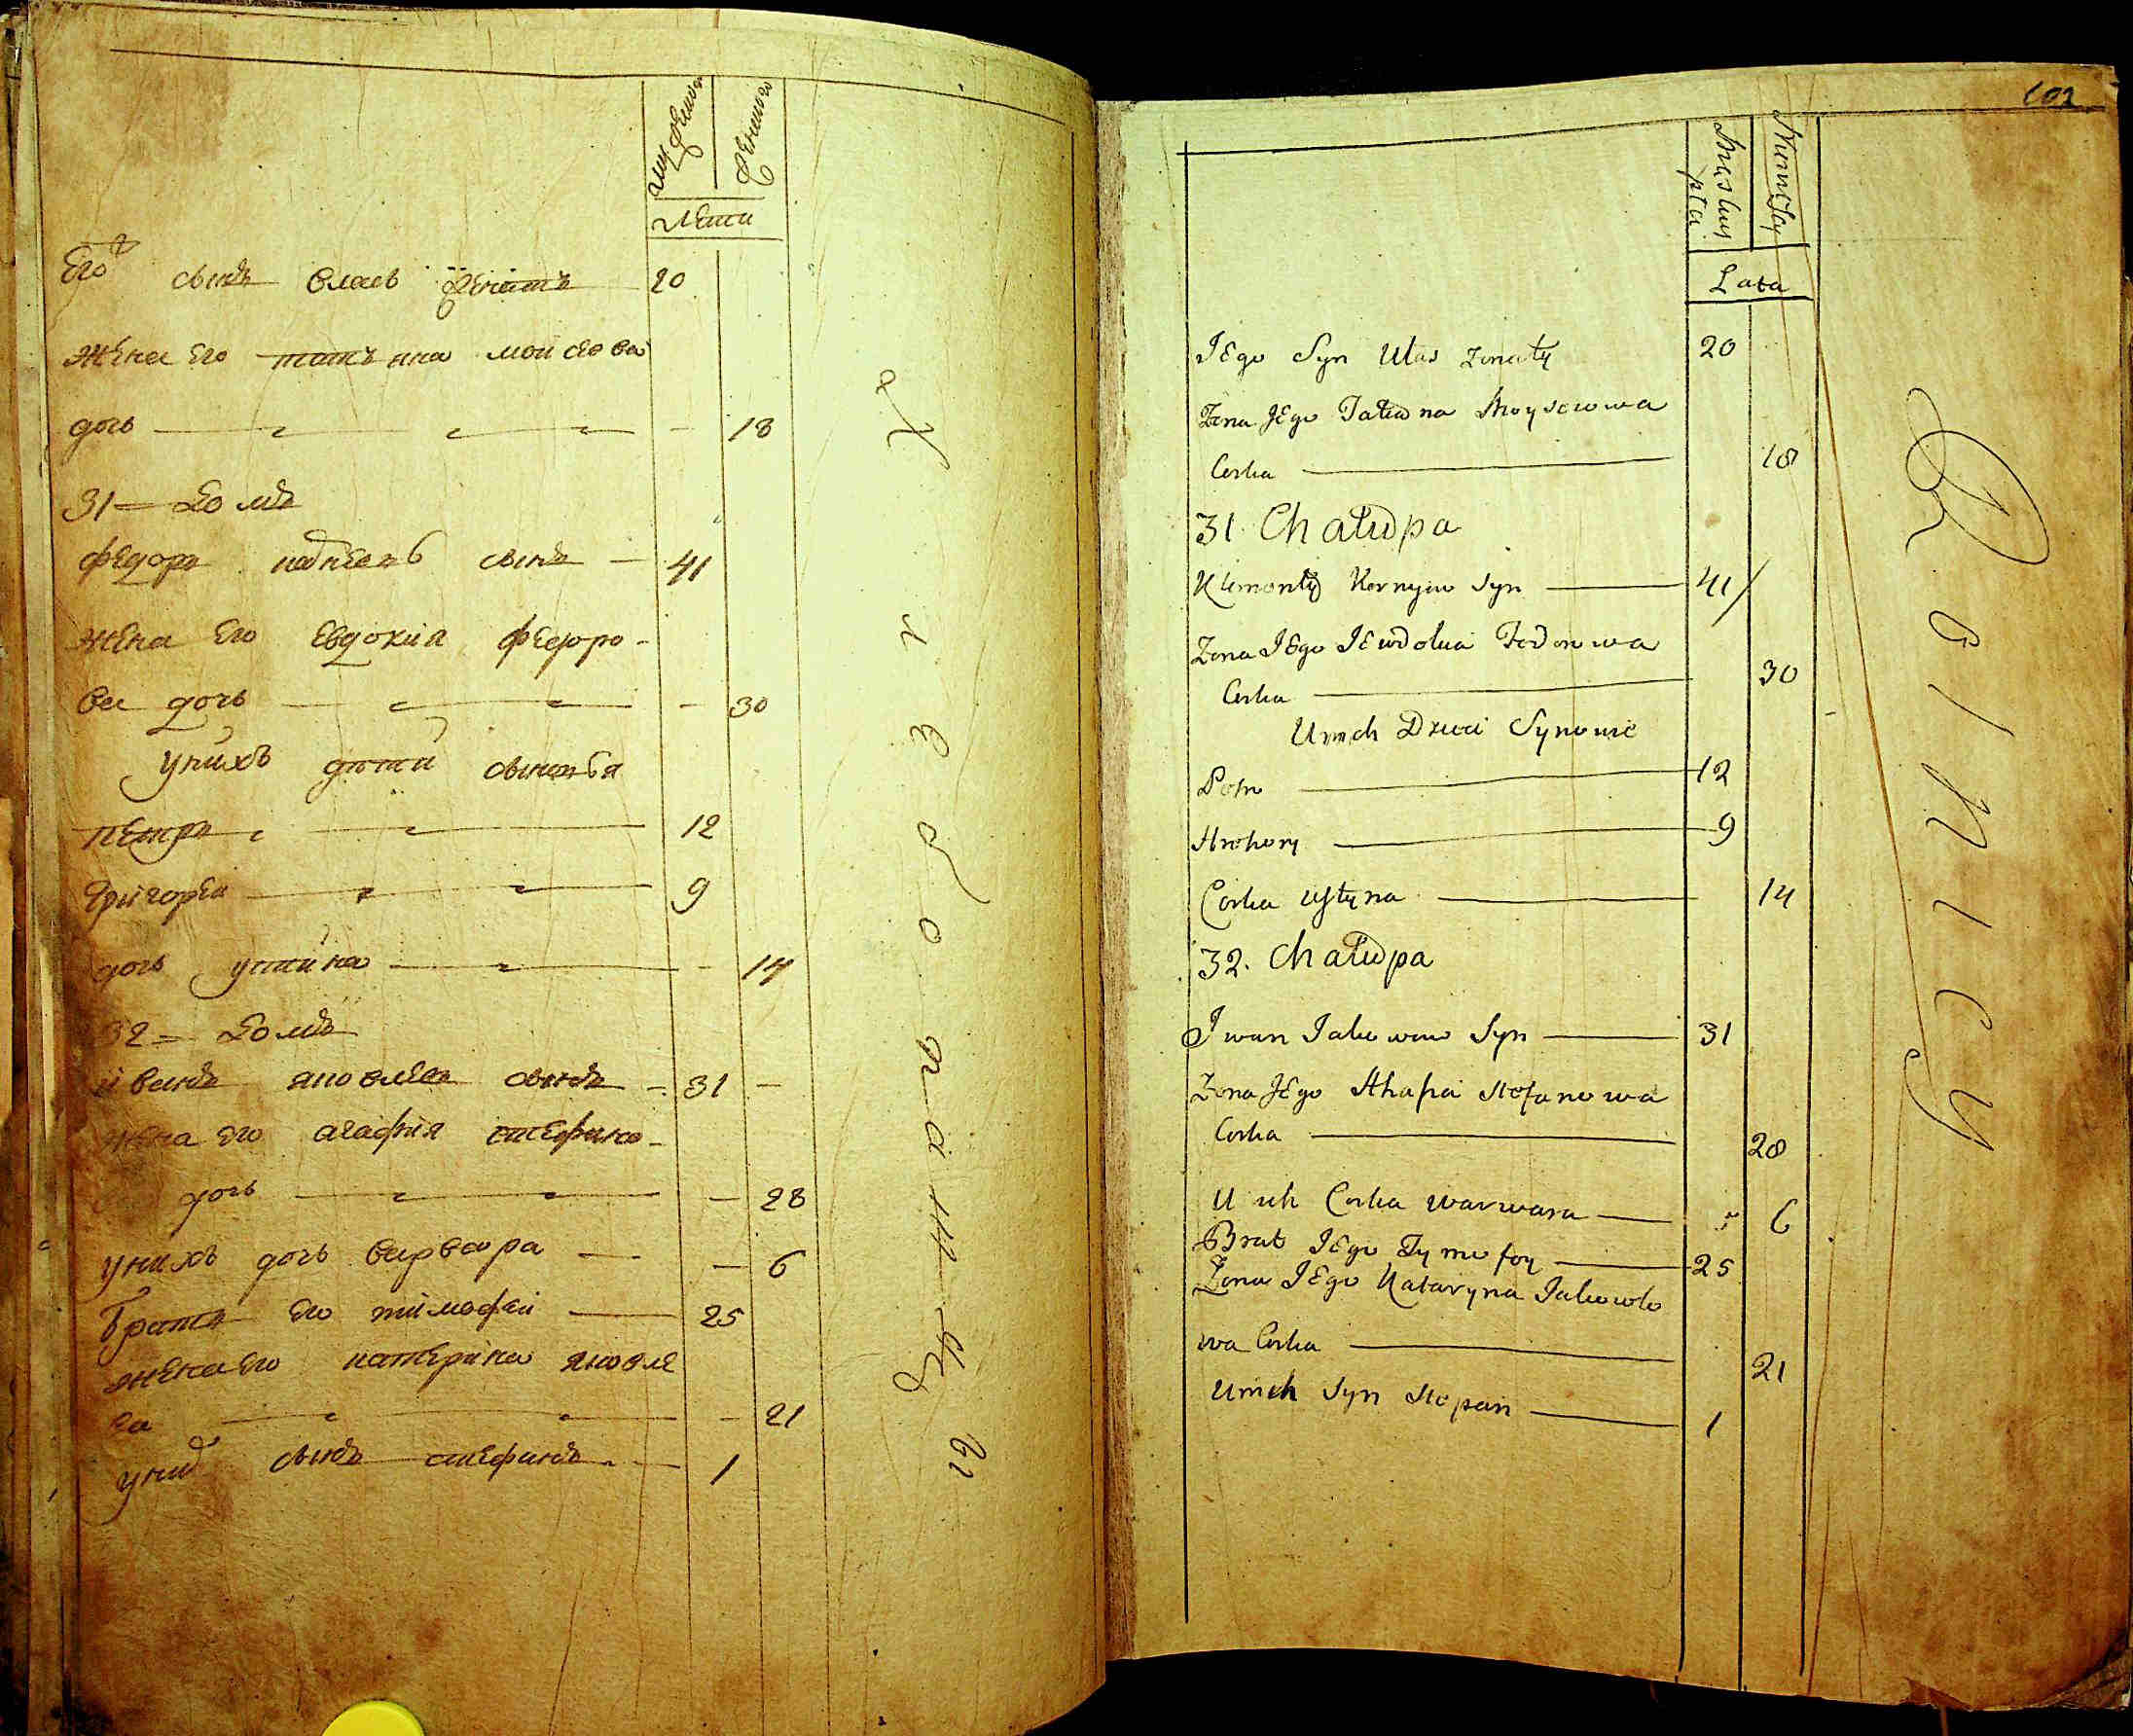 Женско
Лета
Его сынъ влась женатъ 20
жена Его татьяна моисеова
дочь 18
31 домъ
Федоръ сынъ 41
жена Его Евдокия Федоро-
ва дочь 30
унихъ дети сыновя
петръ 12
григореи 9
дочь устина 14
32 = домъ
иванъ яковлевъ сынъ 31
жена Его агафия стефано-
дочь 28
унихъ дочь варвара 6
братъ Его тимофеи 25
жена Его катерина яковле
ва 21
сынъ стефанъ 1
Хлеборобцы
102
Męskiey płci
Lata
JEgo Syn Ulas zonaty 20
Zona JEgo Tatiana Moyseiowa
Corka 18
31 Chałupa
Klimonty Kornyiow Syn 41
Zona JEgo JEwdokia Fedorowa
Corka 30
Unich Dzieci Synowie
Potr 12
Hrehory 9
Corka Ustyna 14
32. Chałupa
Iwan Iakowow Syn 31
Zona JEgo Ahafia Stefanowa
Corka 28
U ich Corka Warwara 6
Brat JEgo Tymofey 25
Zona JEgo Kataryna Iakowlo
wa Corka 21
Unich Syn Stepan 1
Rolnicy